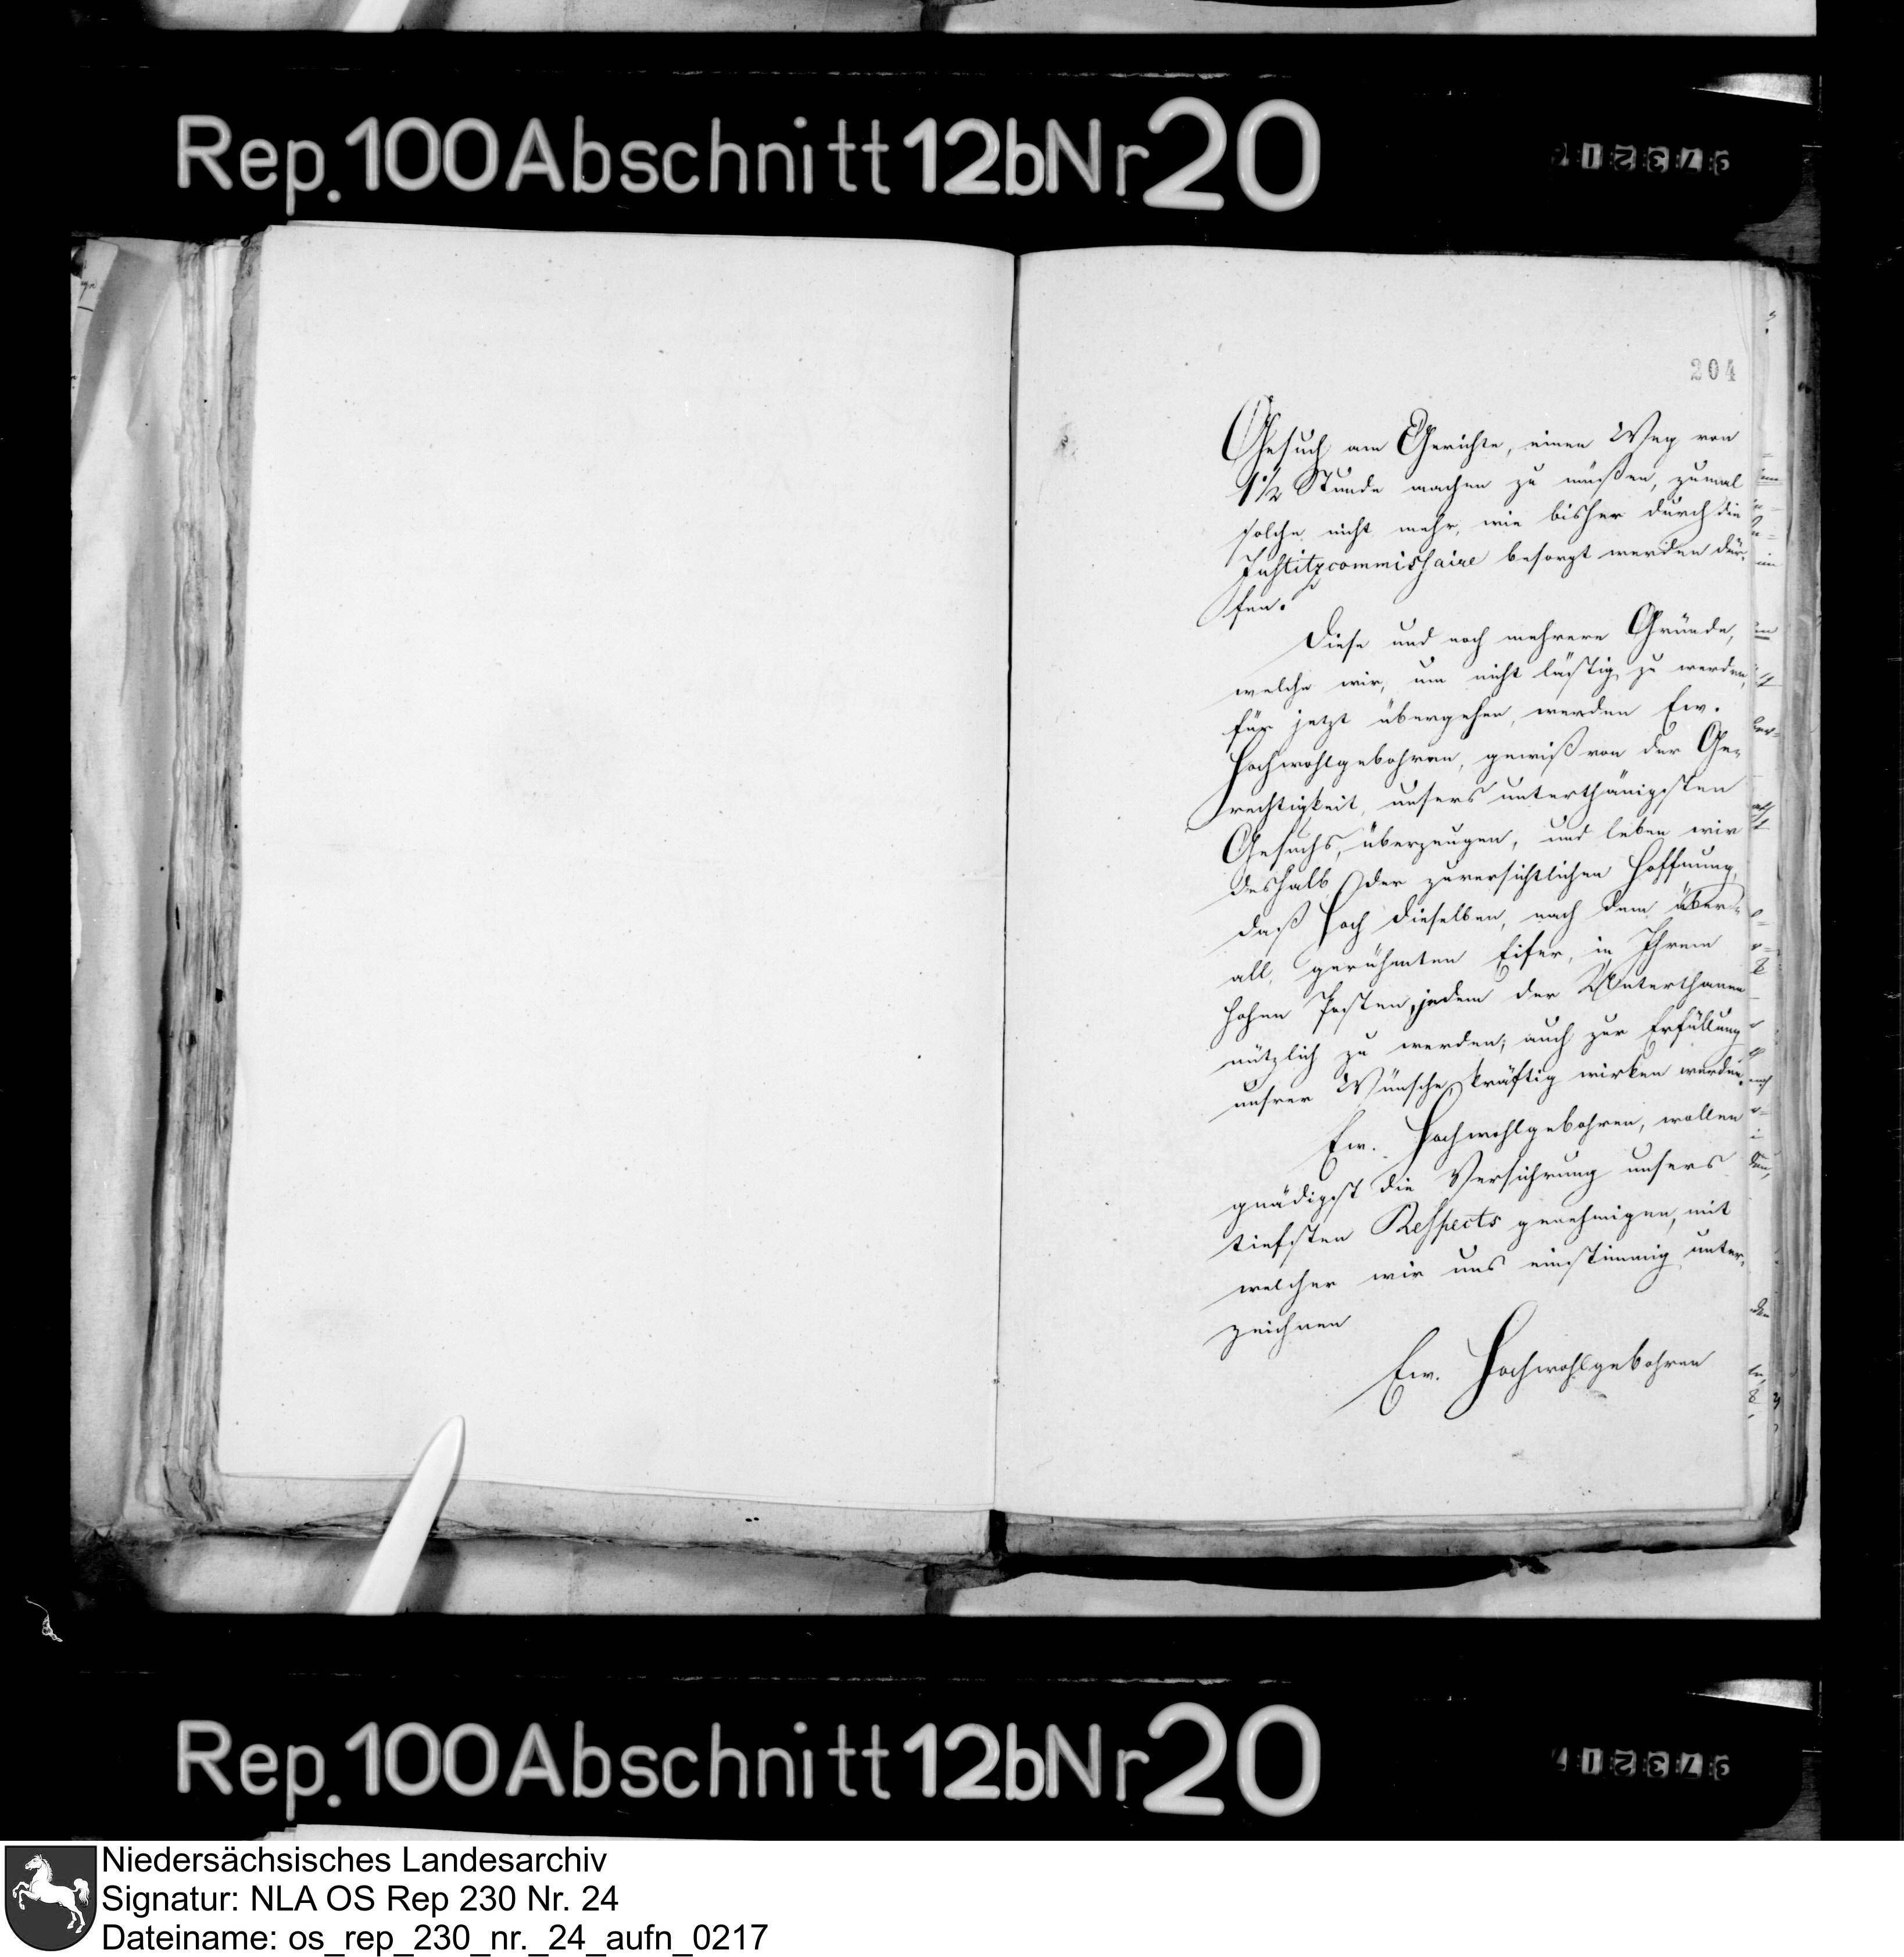 Rep. 100 Abschnitt 12b Nr 20
204
Gesuch am Gerichte, einen Weg von
1½ Stunde machen zu müßen, zumal
solche nicht mehr, wie bisher durch die
Justitzcommissaire besorgt werden dür-
fen.
Diese und noch mehrere Gründe,
welche wir, um nicht lästig zu werden,
für jetzt übergehen, werden Ew.
Hochwohlgebohren, gewiß von der Ge-
rechtigkeit, unsers unterthänigsten
Gesuchs, überzeugen, und leben wir
deshalb der zuversichtlichen Hoffnung,
daß Hoch dieselben, nach dem über-
all, gerühmten Eifer, in Ihrem
hohen Posten, jedem der Unterthanen
nützlich zu werden; auch zur Erfüllung
unsrer Wünsche kräftig wirken werden.
Ew. Hochwohlgebohren, wollen
gnädigst die Versichrung unsers
tiefsten Respects genehmigen, mit
welcher wir uns einstimmig unter-
zeichnen
Ew. Hochwohlgebohren
Rep. 100 Abschnitt 12b Nr 20
Niedersächsisches Landesarchiv
Signatur: NLA OS Rep 230 Nr. 24
Dateiname: os_rep_230_nr._24_aufn_0217